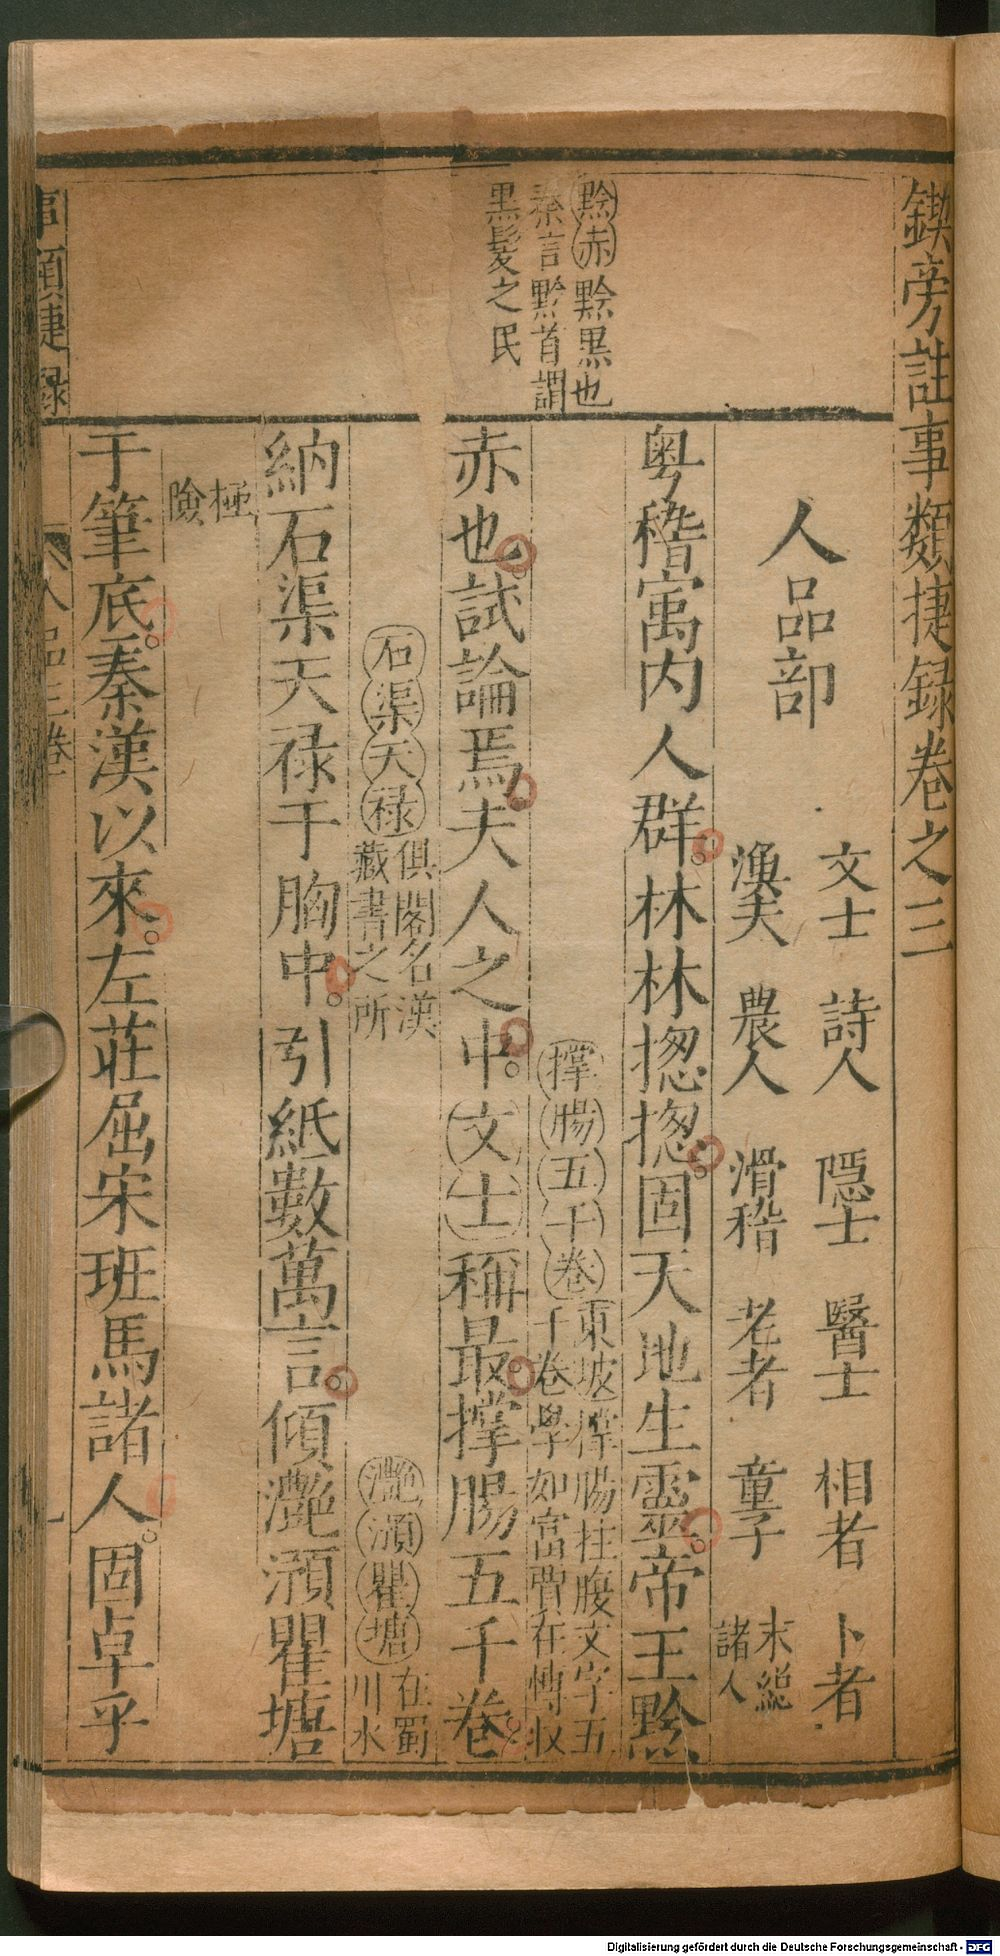 鍥旁註事類捷録卷之三
人品部
文士 詩人 隱士 醫士 相者 卜者
漁夫 農人 滑稽 老者 童子 末総諸人
黔赤 黔黒也
秦言黔首謂
黒髪之民
粤稽寓内人群。林林揔揔。固天地生靈。帝王黔
撑腸五千卷 東坡撑腸拄腹文字五
千卷學如富賈在愽收
赤也。試論焉。夫人之中。文士稱最。撑腸五千卷。
石渠天禄 俱閣名漢
藏書之所
灔澦瞿塘 在蜀
川水
納石渠天禄于胸中。引紙數萬言。傾灔澦瞿塘
極
險
于筆底。秦漢以來。左莊屈宋班馬諸人。固卓乎
事類捷録
人品三卷
一
Digitalisierung gefördert durch die Deutsche Forschungsgemeinschaft - DFG